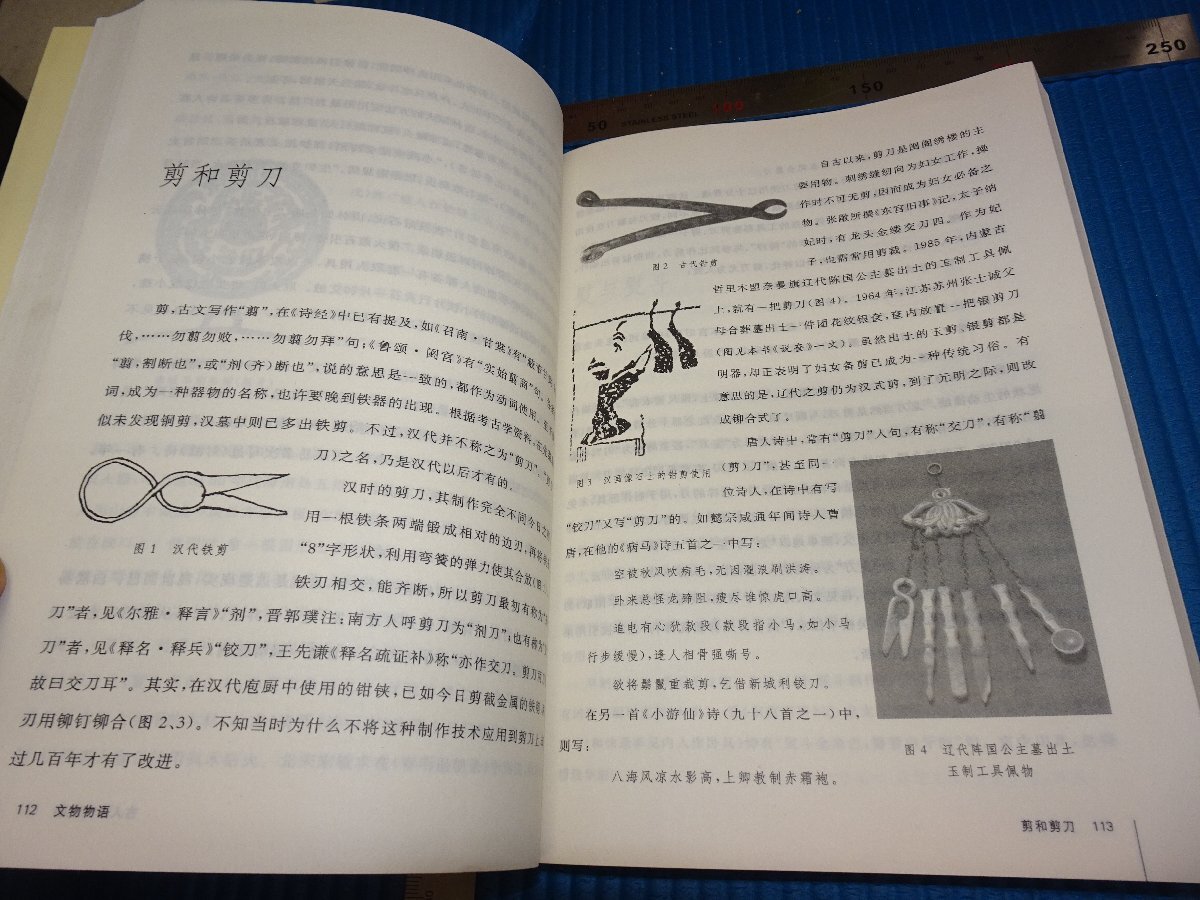 剪和剪刀
剪,古文写作“翦”,在《诗经》中已有提及,如《召南·甘棠》有“蔽芾
伐,……勿翦勿败,……勿翦勿拜”句;《鲁颂·閟宫》有“实始翦商”句,
“翦,割断也”,或“剂(齐)断也”,说的意思是一致的,都作为动词使用。
词,成为一种器物的名称,也许要晚到铁器的出现。根据考古学资料,在
似未发现铜剪,汉墓中则已多出铁剪。不过,汉代并不称之为“剪刀”,“剪
刀)之名,乃是汉代以后才有的。
汉时的剪刀,其制作完全不同今日之
用一根铁条两端锻成相对的边刃,再
“8”字形状,利用弯簧的弹力使其合放(图
图1 汉代铁剪
铁刃相交,能齐断,所以剪刀最初有称为“
刀”者,见《尔雅·释言》“剂”,晋郭璞注;南方人呼剪刀为“剂刀”;也有称为“
刀”者,见《释名·释兵》“铰刀”,王先谦《释名疏证补》称“亦作交刀。剪刀
故曰交刀耳”。其实,在汉代庖厨中使用的钳铗,已如今日剪截金属的铁
刃用铆钉铆合(图2,3)。不知当时为什么不将这种制作技术应用到剪刀上
过几百年才有了改进。
112 文物物语
50 STAINLESS STEEL 100 150 250
自古以来,剪刀是闺阁绣楼的主
要用物。刺绣缝纫向为妇女工作,操
作时不可无剪;因而成为妇女必备之
物。张敞所撰《东宫旧事》记,太子纳
妃时,有龙头金缕交刀四。作为妃
图2 古代铁剪
子,也需常用剪裁。1985年,内蒙古
哲里木盟奈曼旗辽代陈国公主墓出土的玉制工具佩
上,就有一把剪刀(图4)。1964年,江苏苏州张士诚父
母合葬墓出土一件团花纹银奁,奁内放置一把银剪刀
(图见本书《说奁》一文)。虽然出土的玉剪、银剪都是
明器,却正表明了妇女备剪已成为一种传统习俗。有
意思的是,辽代之剪仍为汉式剪,到了元明之际,则改
成铆合式了。
唐人诗中,常有“剪刀”入句,有称“交刀”,有称“翦
图3 汉画像石上的钳剪使用
(剪)刀”,甚至同一
位诗人,在诗中有写
“铰刀”又写“剪刀”的。如懿宗咸通年间诗人曹
唐,在他的《病马》诗五首之一中写:
空被秋风吹病毛,无因濯浪刷洪涛。
卧来总怪龙蹄跙,瘦尽谁惊虎口高。
追电有心犹款段(款段指小马,如小马
行步缓慢),逢人相骨强嘶号。
欲将鬃鬣重裁剪,乞借新城利铰刀。
在另一首《小游仙》诗(九十八首之一)中,
则写:
八海风凉水影高,上卿教制赤霜袍。
图4 辽代陈国公主墓出土
玉制工具佩物
剪和剪刀 113